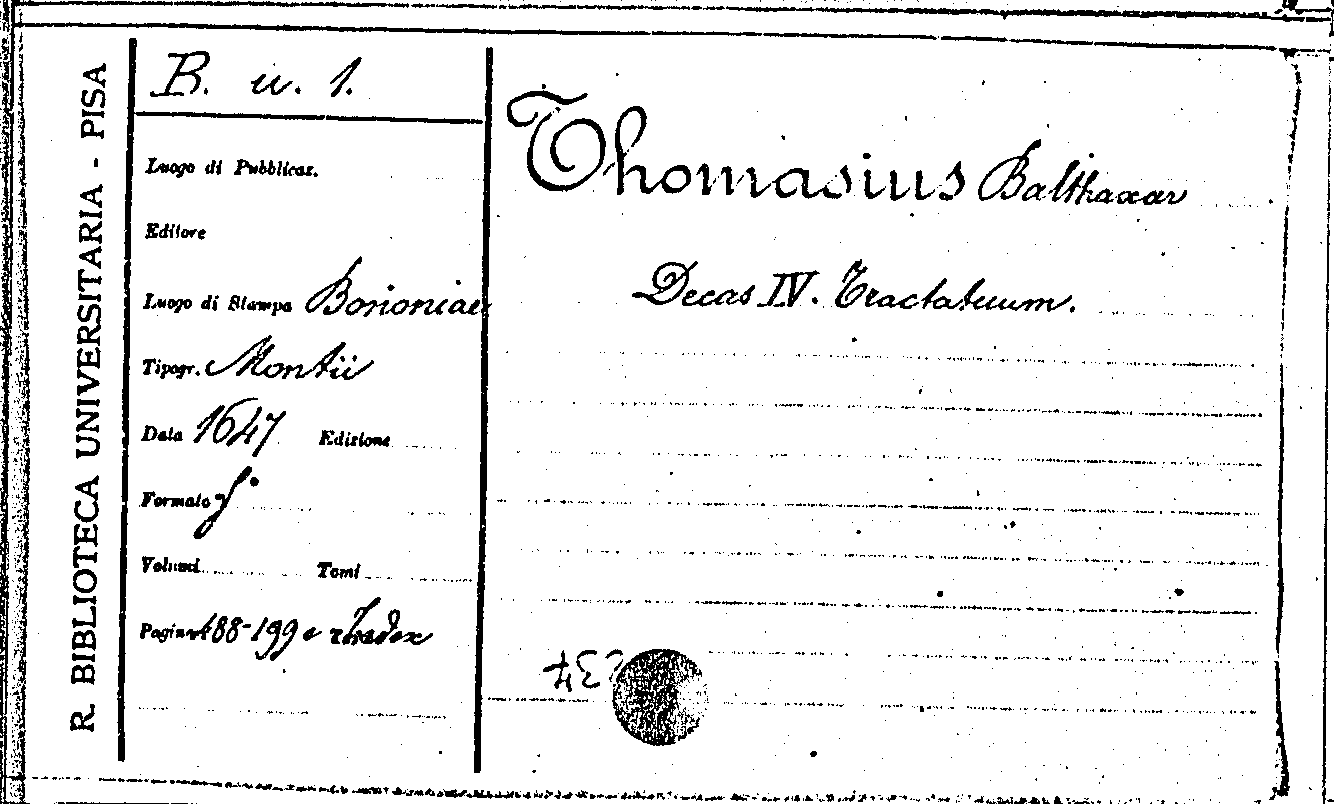 R. BIBLIOTECA UNIVERSITARIA - PISA
B. u. 1.
Luogo di Pubblicaz.
Editore
Luogo di Stampa Bononiae
Tipogr. Montii
Data 1647 Edizione
Formato f.°
Volumi Tomi
Pagine 188-199 e Index
Thomasius Balthaxar
Decas IV. Tractatuum.